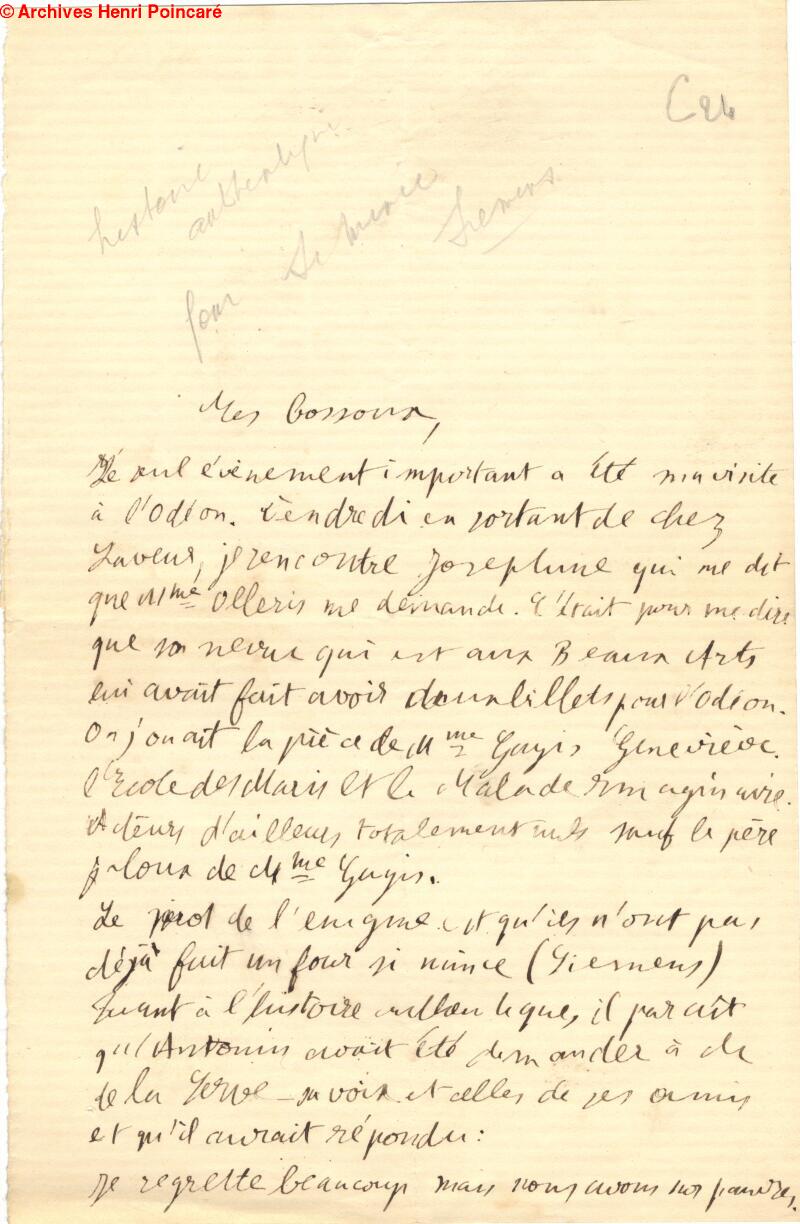 © Archives Henri Poincaré
C 26
histoire
authentique
four si mince
Siemens
Mes Bossoux,
Le seul évènement important a été ma visite
à l'Odéon. Vendredi en sortant de chez
Laveur, je rencontre Josephine qui me dit
que Mme Olleris me demande. C'était pour me dire
que son neveu qui est aux Beaux Arts
lui avait fait avoir deux billets pour l'Odéon.
On jouait la pièce de Mme Gagis Geneviève.
l'Ecole des Maris et le Malade Imaginaire.
Acteurs d'ailleurs totalement nuls sauf le père
jaloux de Mme Gagis.
Le mot de l'enigme est qu'ils n'ont pas
déjà fait un four si mince (Siemens)
Quant à l'histoire authentique, il parait
qu'Antonin avait été demander à M
de la Serve sa voix et celles de ses amis
et qu'il aurait répondu:
Je regrette beaucoup mais nous avons nos pauvres.